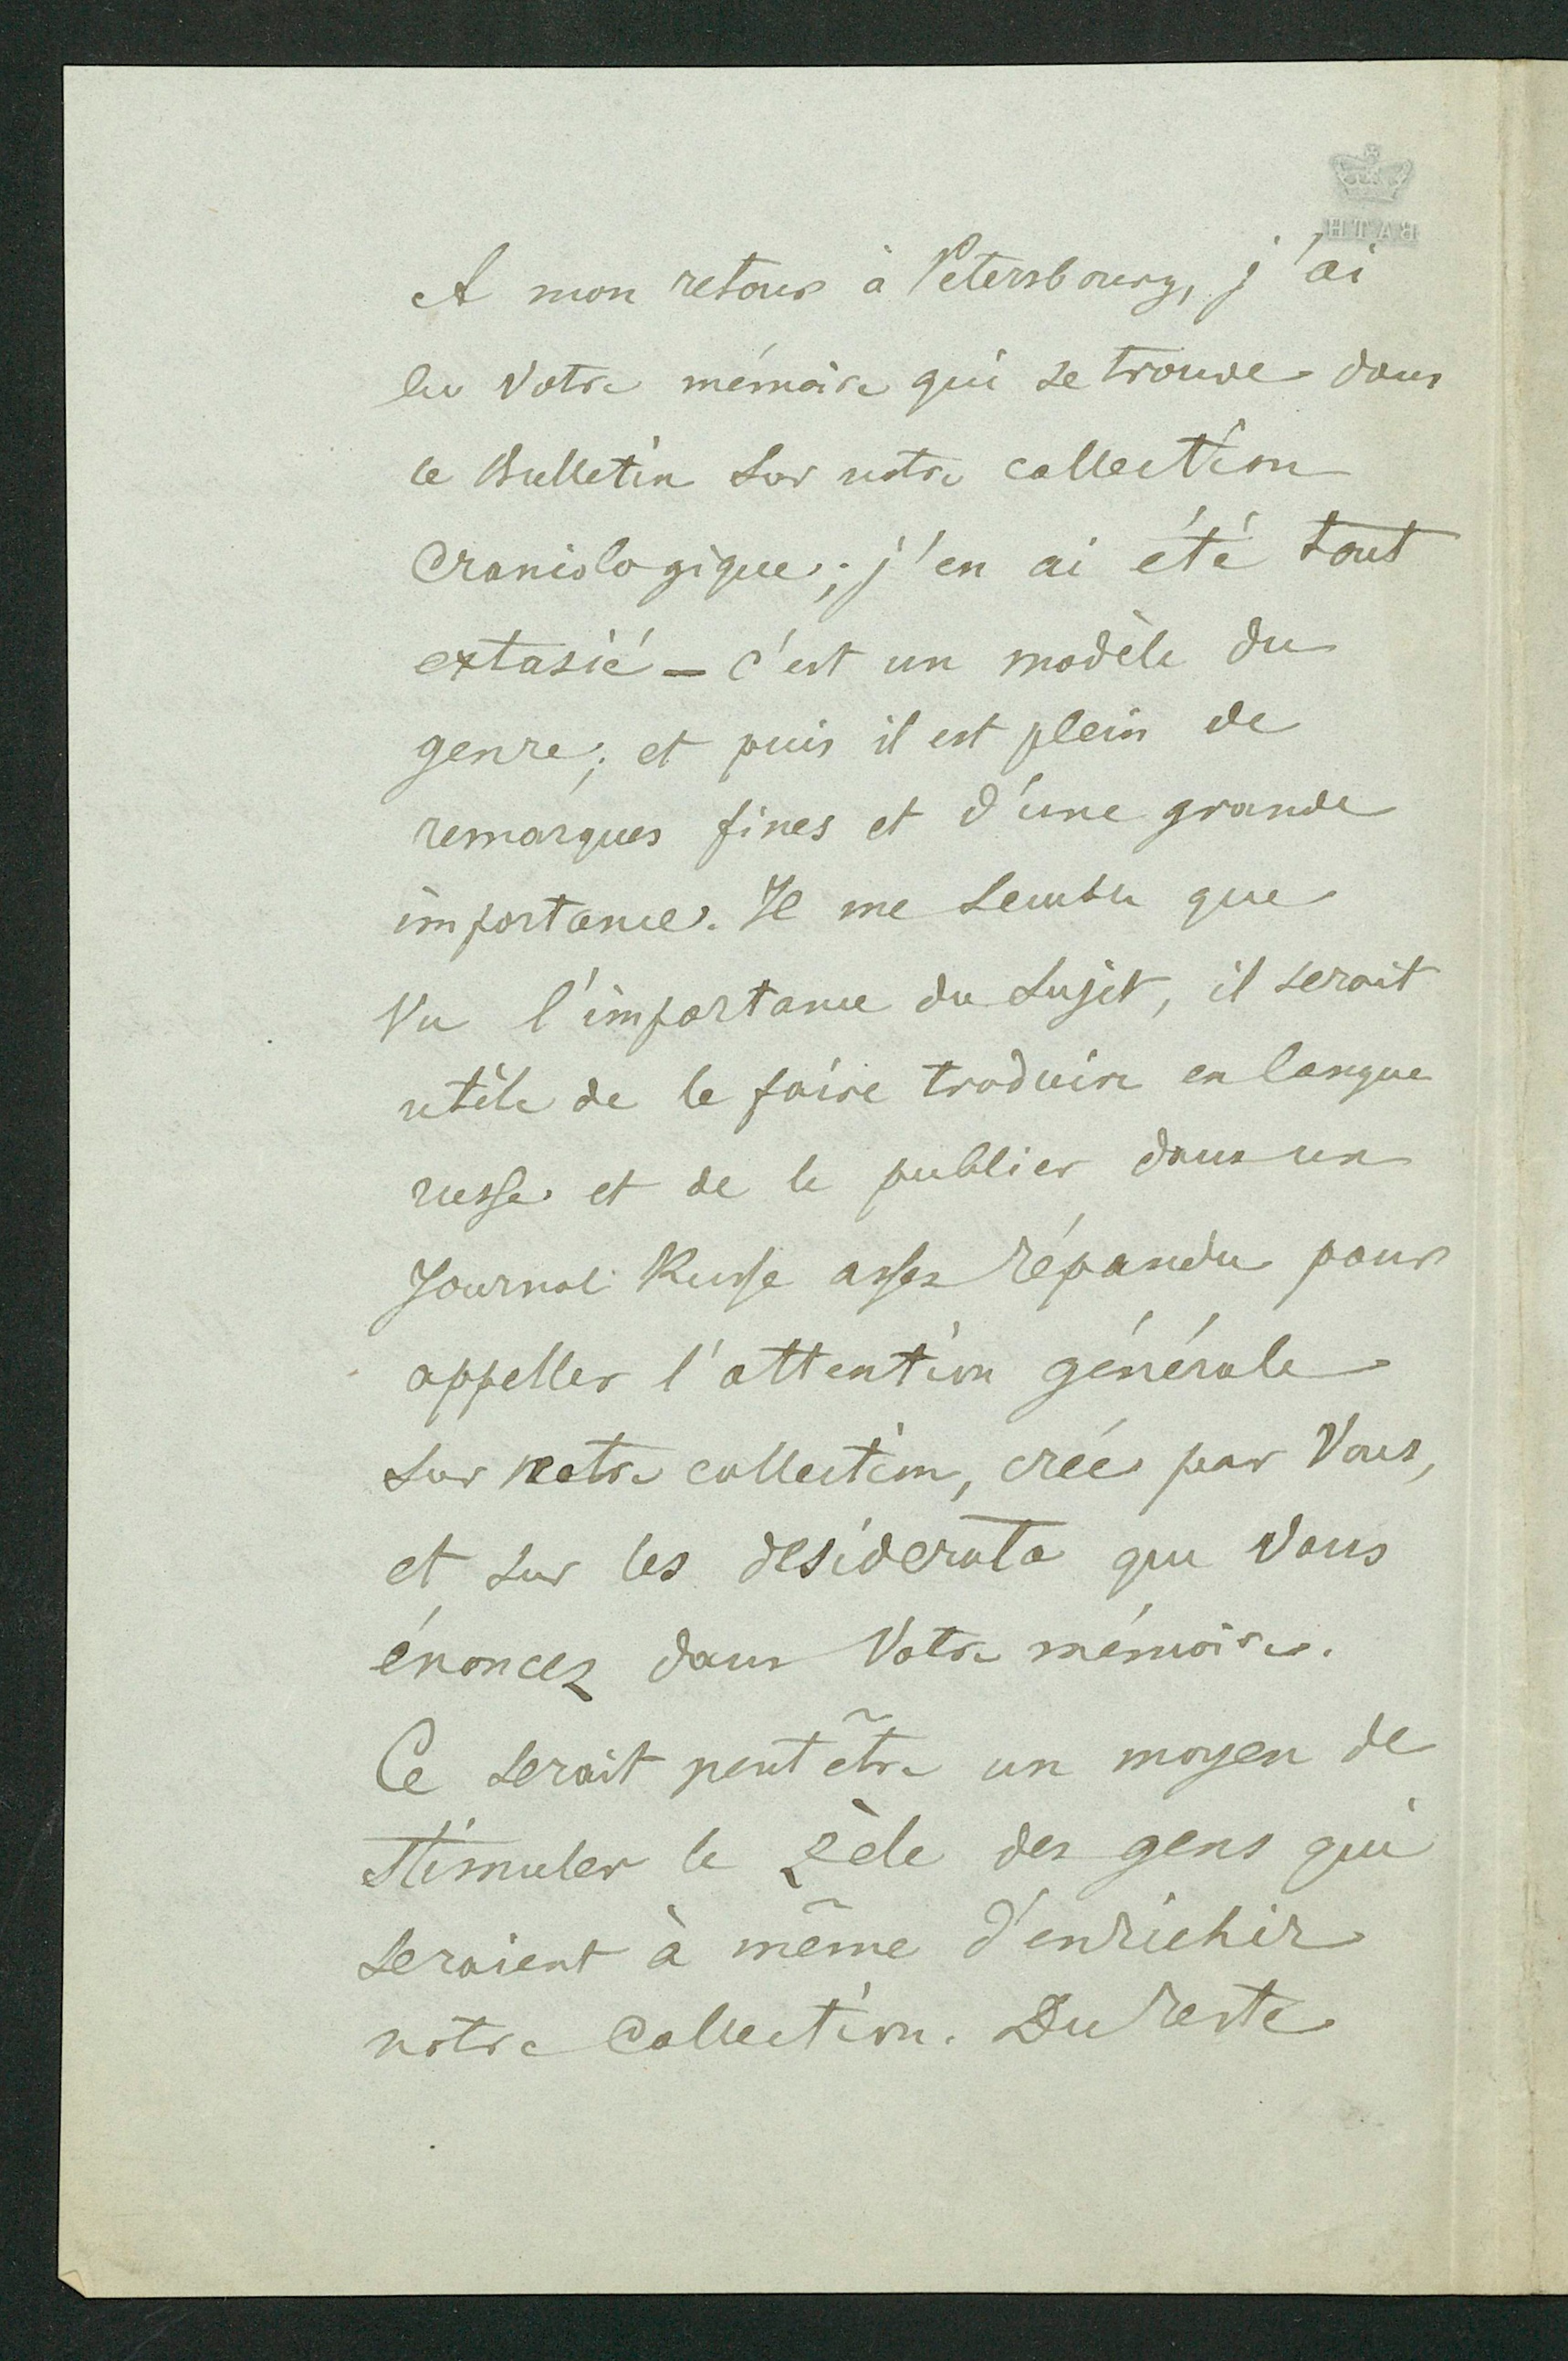 A mon retour à Petersbourg, j'ai
lu Votre mémoire qui se trouve dans
le Bulletin sur notre collection
craniologique; j'en ai été tout
extasié – c'est un modèle du
genre; et puis il est plein de
remarques fines et d'une grande
importance. Il me semble que
Vu l'importance du sujet, il serait
utile de le faire traduire en langue
russe et de le publier dans un
Journal Russe assez répandu pour
appeller l'attention générale
sur notre collection, crée par Vous,
et sur les desiderata que Vous
énoncez dans Votre mémoire.
Ce serait peut être un moyen de
stimuler le zèle des gens qui
seraient à même d'enrichir
notre collection. Du reste
BATH